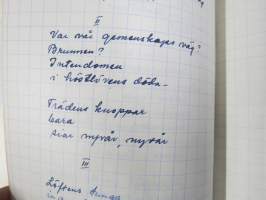 II
Var vår gemenskaps väg?
Brunnen?
Intendomen
i höstlövens döda
Trädens knoppar
bara
sia nyvår, nyvår
III
Löftens